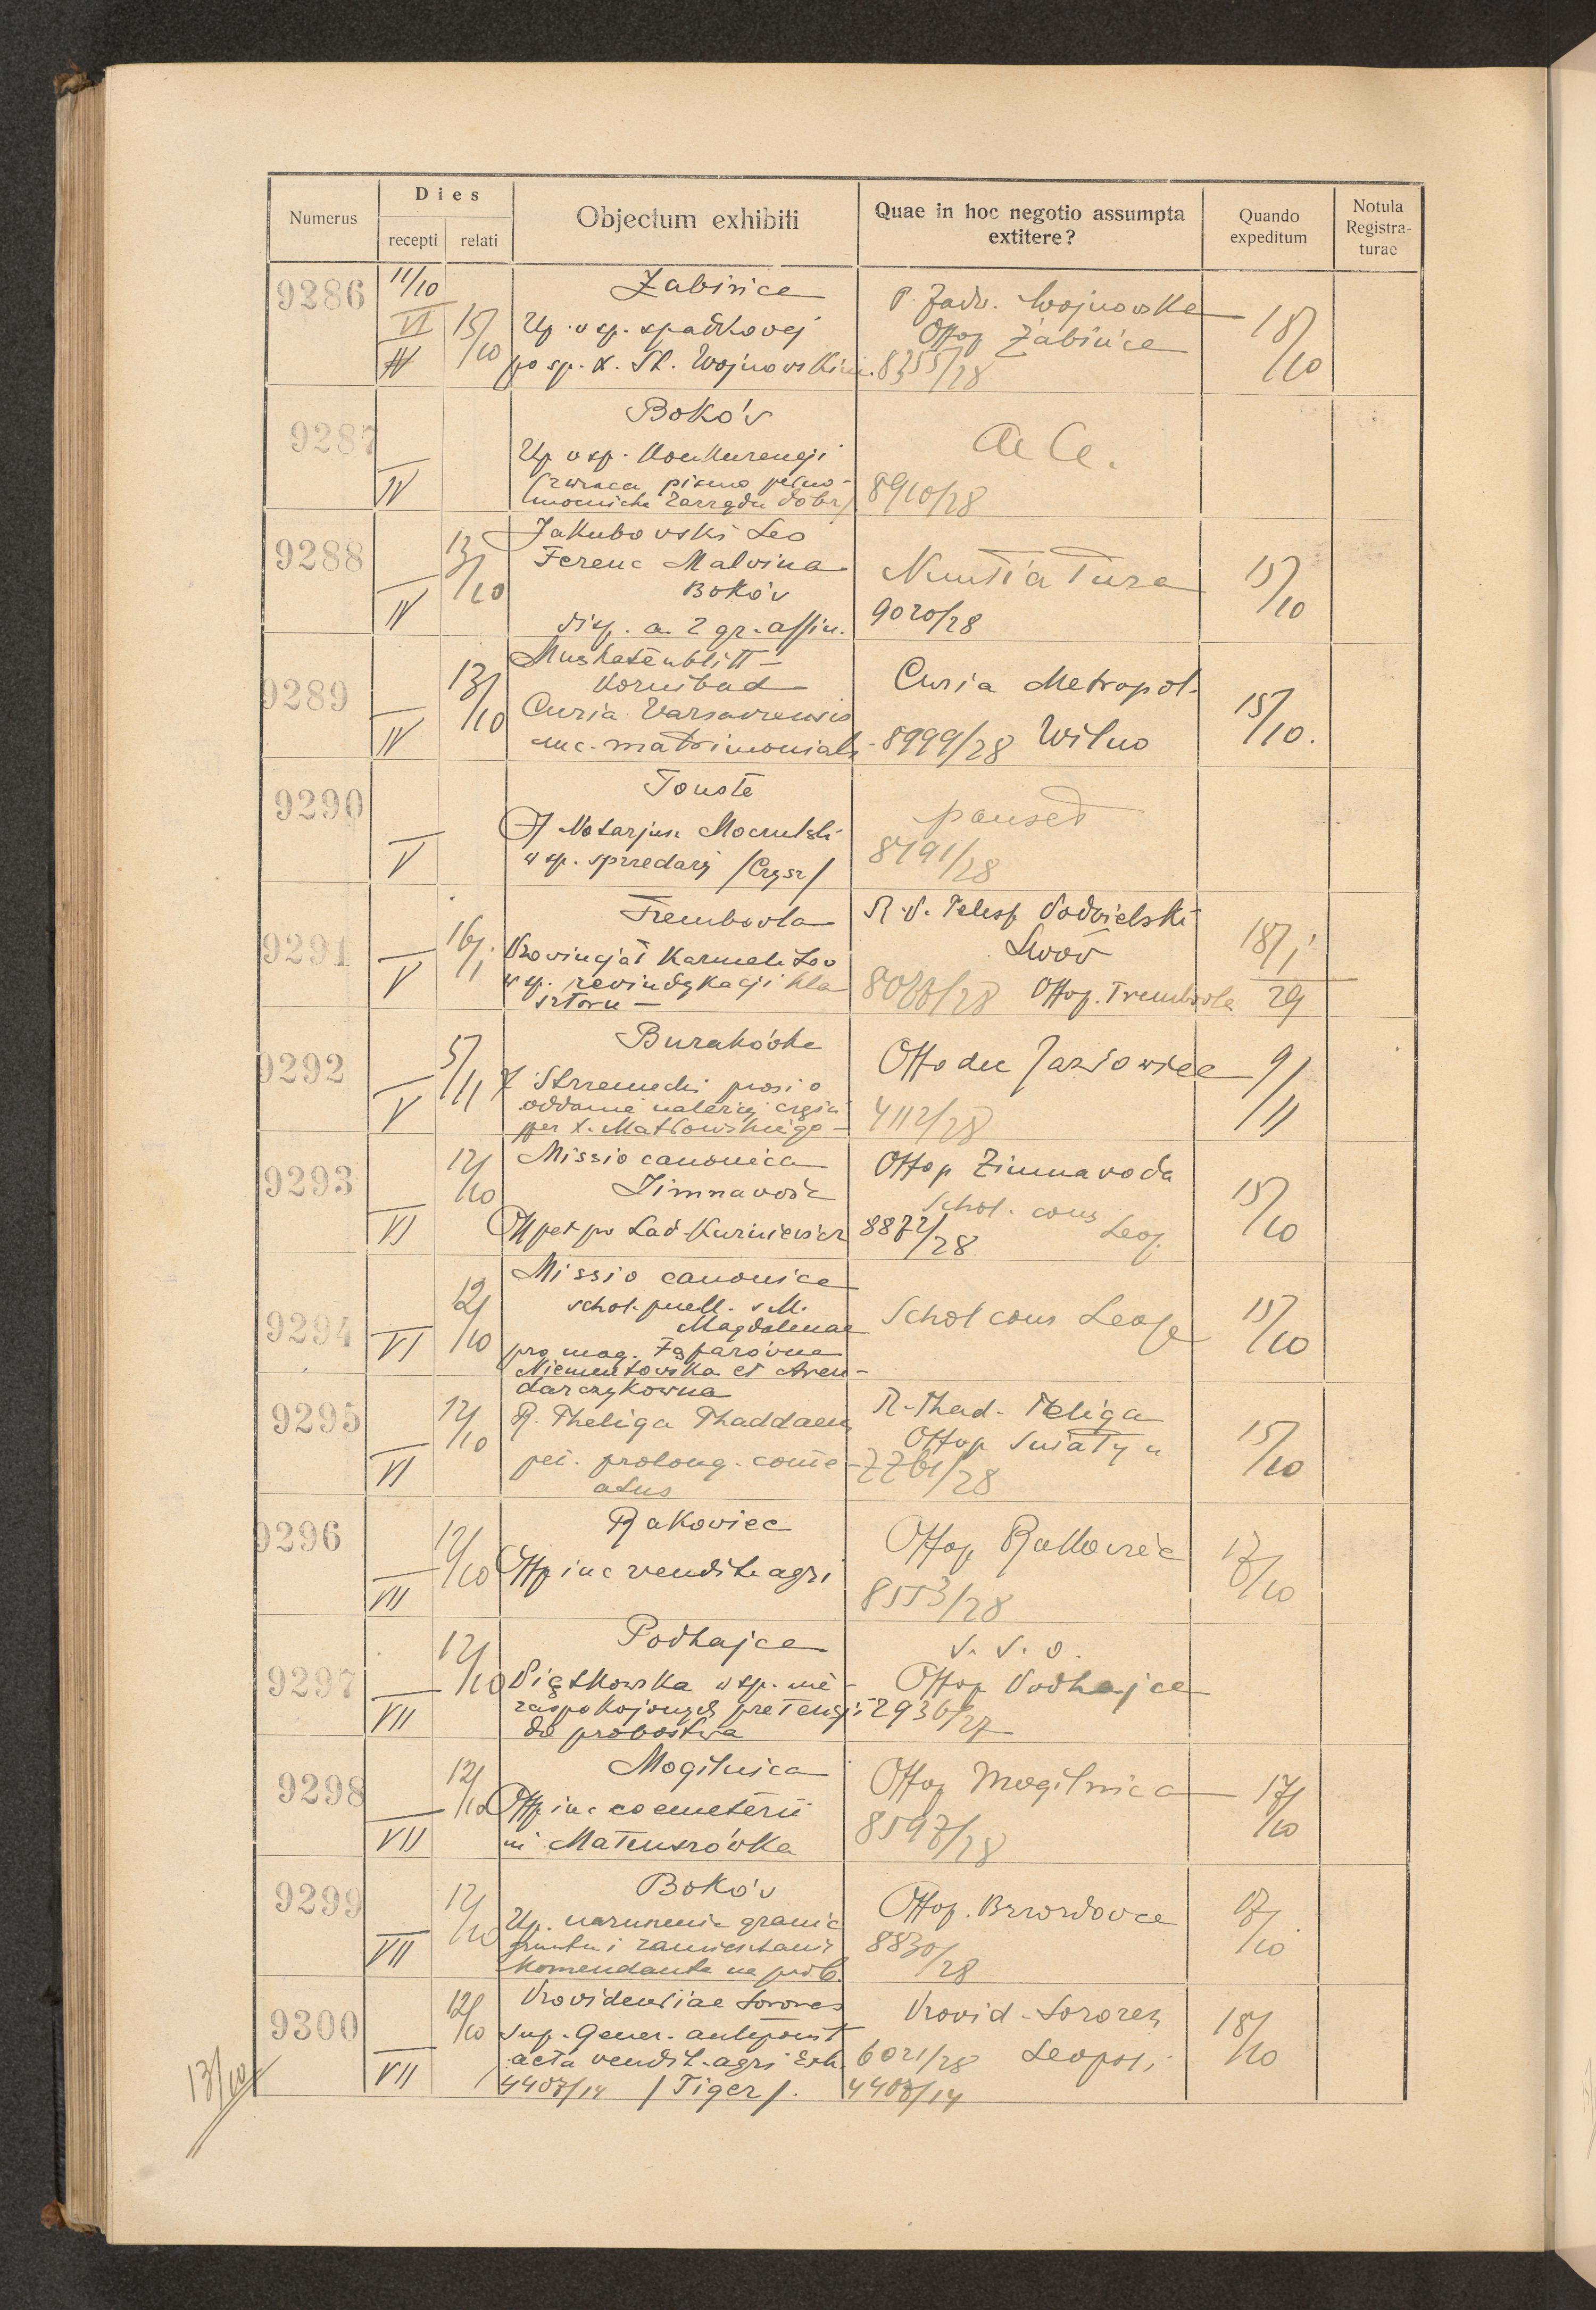 Numerus
Dies
recepti
relati
Objectum exhibiti
Quae in hoc negotio assumpta
extitere?
Quando
expeditum
Notula
Registra-
turae
9286
11/10
VI
15/10
Żabińce
Up. w sp. spadkowej
po sp. X. St. Wojnowskim
P. Jadw. Wojnowska
Offop Żabińce
8355/28
18/10
9287
IV
Boków
Up w sp. Konkurencji
(zwraca pismo pełno-
mocnicki Zarządu dóbr)
ac Ce.
8910/28
9288
IV
13/10
Jakubowski Leo
Ferenc Malvina
Boków
disp. a 2 gr. affin.
Nuntiatura
9020/28
15/10
9289
IV
13/10
Muskatenblitt -
Kornibad
Curia Varsaviensis
inc. matrimonials
Curia Metropol.
8999/28 Wilno
15/10.
9290
V
Touste
Notarjusz
w sp. sprzedaży /Czysz/
8791/28
9291
V
16/1
Trembowla
Prowincjał Karmelitów
w sp. rewindykacji kla
sztoru -
R. P. Telesf Podwielski
Lwów
8088/28 Offop. Trembowla
18/1
29
9292
V
5/11
Burakówka
X Strzemecki prosi o
oddanie należnej części
per X. Matłowskiego -
Offo dec Jazłowiec
4112/28
9/11
9293
VI
12/10
Missio canonica
Zimnawoda
Off pet pro Lad. Kurniewicz
Offop Zimnawoda
Schol. cons
Leop.
8872/28
15/10
9294
VI
12/10
Missio canonica
schol. puell. s M.
Magdalenae
pro mag.
Niementowska et Aren-
darczykowna
Schol cons Leop
15/10
9295
VI
12/10
R. Theliga Thaddaeus
pet. prolong. come-
atus
R. Thad. Teliga
Offop Sniatyn
7761/28
15/10
9296
VII
12/10
Rakowiec
Offop inc vendit agri
Offop Rakowiec
8553/28
17/10
9297
VII
12/10
Podhajce
Piątkowska w sp. nie-
zaspokojonych pretensji
do probostwa
V. V. O.
Offop Podhajce
2936/27
9298
VII
12/10
Mogilnica
Offop inc coemeterii
in Mateuszówka
Offop Mogilnica
8597/28
17/10
9299
VII
12/10
Boków
Up. naruszenie granic
gruntu i zamieszkanie
Komendanta na prob.
Offop. Brzozdowce
8830/28
17/10
9300
VII
12/10
Providentiae Sorores
Sup. Gener. antepónit
acta vendit. agri Exh.
4407/14 /Tiger/.
Provid. Sorores
6021/28 Leopoli
4407/14
18/10
13/10